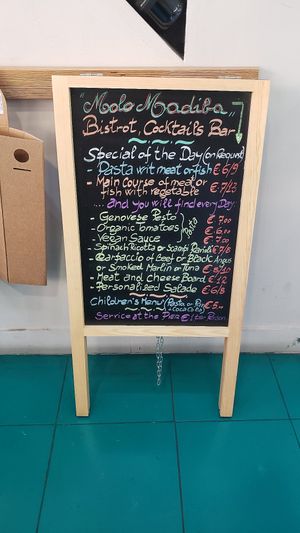 "Molo Madiba"
Bistrot, Cocktails Bar
Special of the Day (on Request)
- Pasta wit meat or fish € 6/9
- Main course of meat or
fish with vegetable € 7/13
...and you will find every Day:
- Genovese Pesto € 7.00
- Organic tomatoes € 6.00
- Vegan Sauce € 7.00
Pasta
- Spinach Ricotta or Scampi Ravioli € 7/8
- Carpaccio of Beef or Black Angus
or Smoked Marlin or Tuna € 8/10
- Meat and Cheese Board € 12
- Personalized Salade € 6/8
Children's Menu (Pasta or Pizza + Coca Cola) € 5...
Service at the Pier € 1 to Person